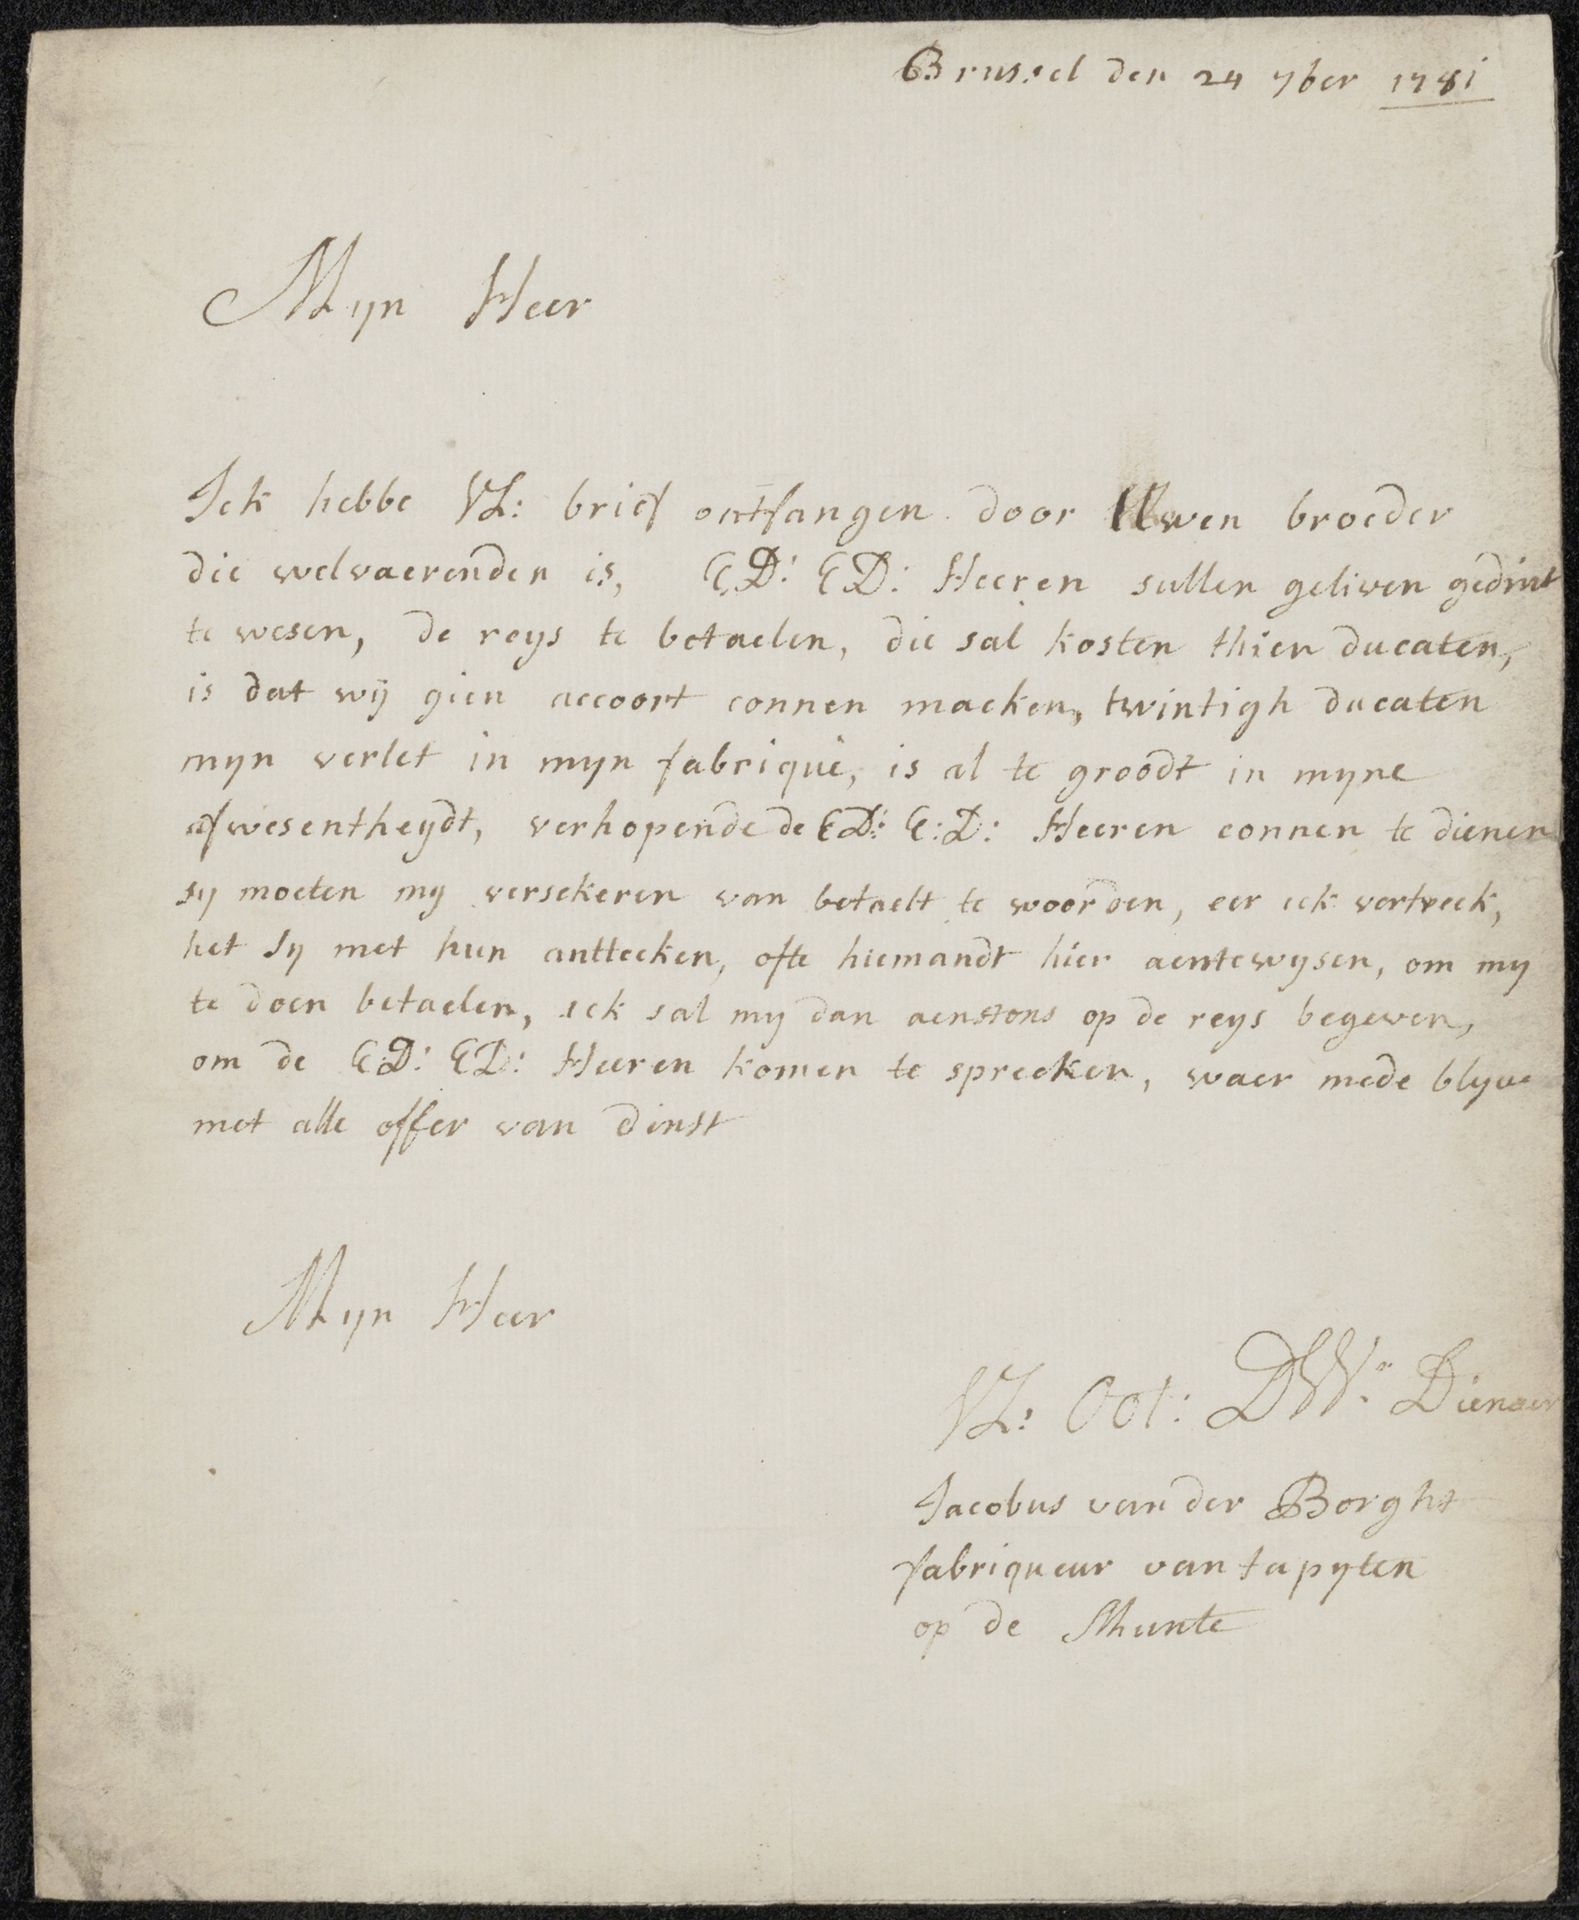 Brussel den 24 7ber 1781
Mijn Heer
Ick hebbe VL: brief ontfangen door Uwen broeder
die welvaerenden is, ED: ED: Heeren sullen geliven gedint
te wesen, de reys te betaelen, die sal kosten thien ducaten,
is dat wij gien accoort connen macken, twintigh ducaten
myn verlet in myn fabrique, is al te groodt in myne
afwesentheydt, verhopende de ED: E:D: Heeren connen te dienen
sy moeten my versekeren van betaelt te woorden, eer ick vertreck,
het sy met hun antteeken, ofte hiemandt hier aentewysen, om my
te doen betaelen, ick sal my dan aenstons op de reys begeven,
om de E:D: ED: Heeren komen te spreeken, waer mede blyve
met alle offer van dinst
Mijn Heer
VL: Oot: DW: Dienaer
Jacobus van der Borght
fabriqueur van tapyten
op de Munte